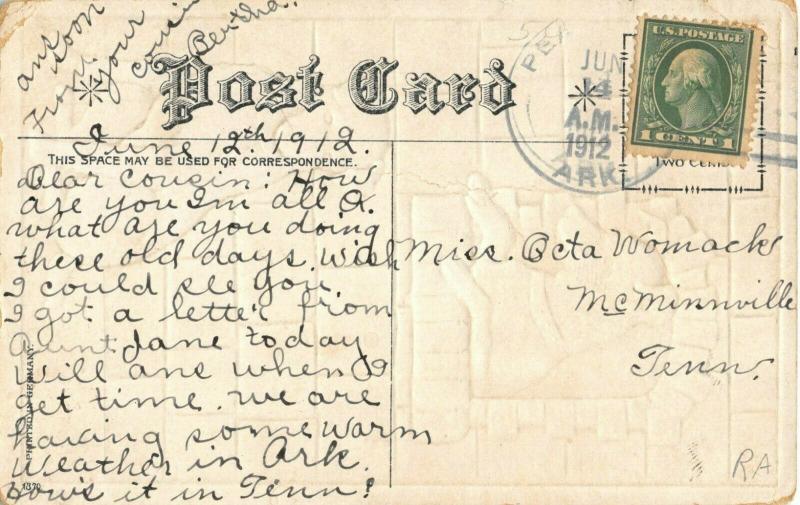 Post Card
June 12th. 1912.
THIS SPACE MAY BE USED FOR CORRESPONDENCE.
Dear Cousin: How
are you I'm all O.
what are you doing
these old days. Wish
I could see you.
I got a letter from
Aunt Jane today
Will ans when I
get time. we are
having some warm
Weather in Ark.
How's it in Tenn?
ans soon
From your
cousin
Bertha.
Miss. Octa Womack
McMinnville
Tenn.
JUN
A.M.
1912
ARK.
U.S. POSTAGE
1 CENT 1
TWO CENTS
PRINTED IN GERMANY.
1370
RA